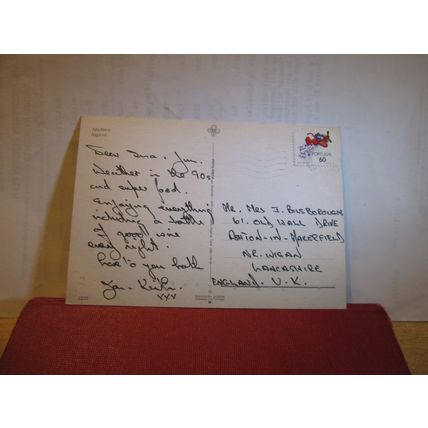 Algarve
Dear Ina. Jim.
Weather in the 90s
and super food.
enjoying everything
including a bottle
of good wine
every night.
here's to you both
Jan. Keith.
xxx
PORTUGAL
60
MR. MRS J. BUSBOROUGH
61. OLD HALL DRIVE
ASHTON-IN-MAKERFIELD
NR. WIGAN
LANCASHIRE
ENGLAND. U.K.